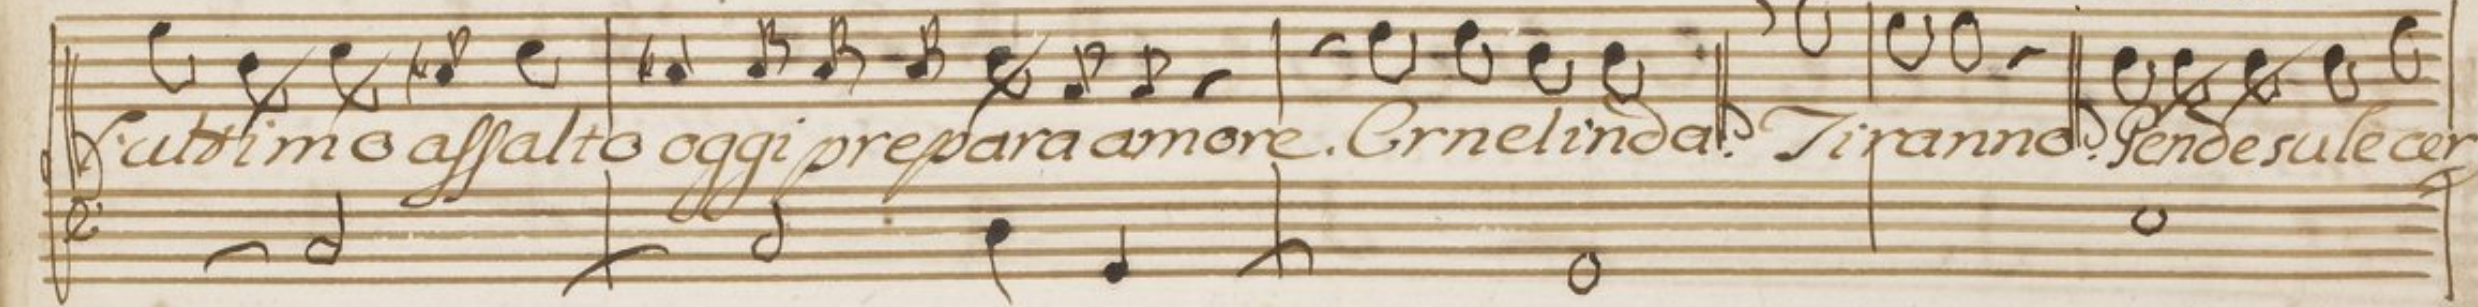 L'ulttimo assalto oggi prepara amore. Ernelinda. Tiranno. Pende sule cer